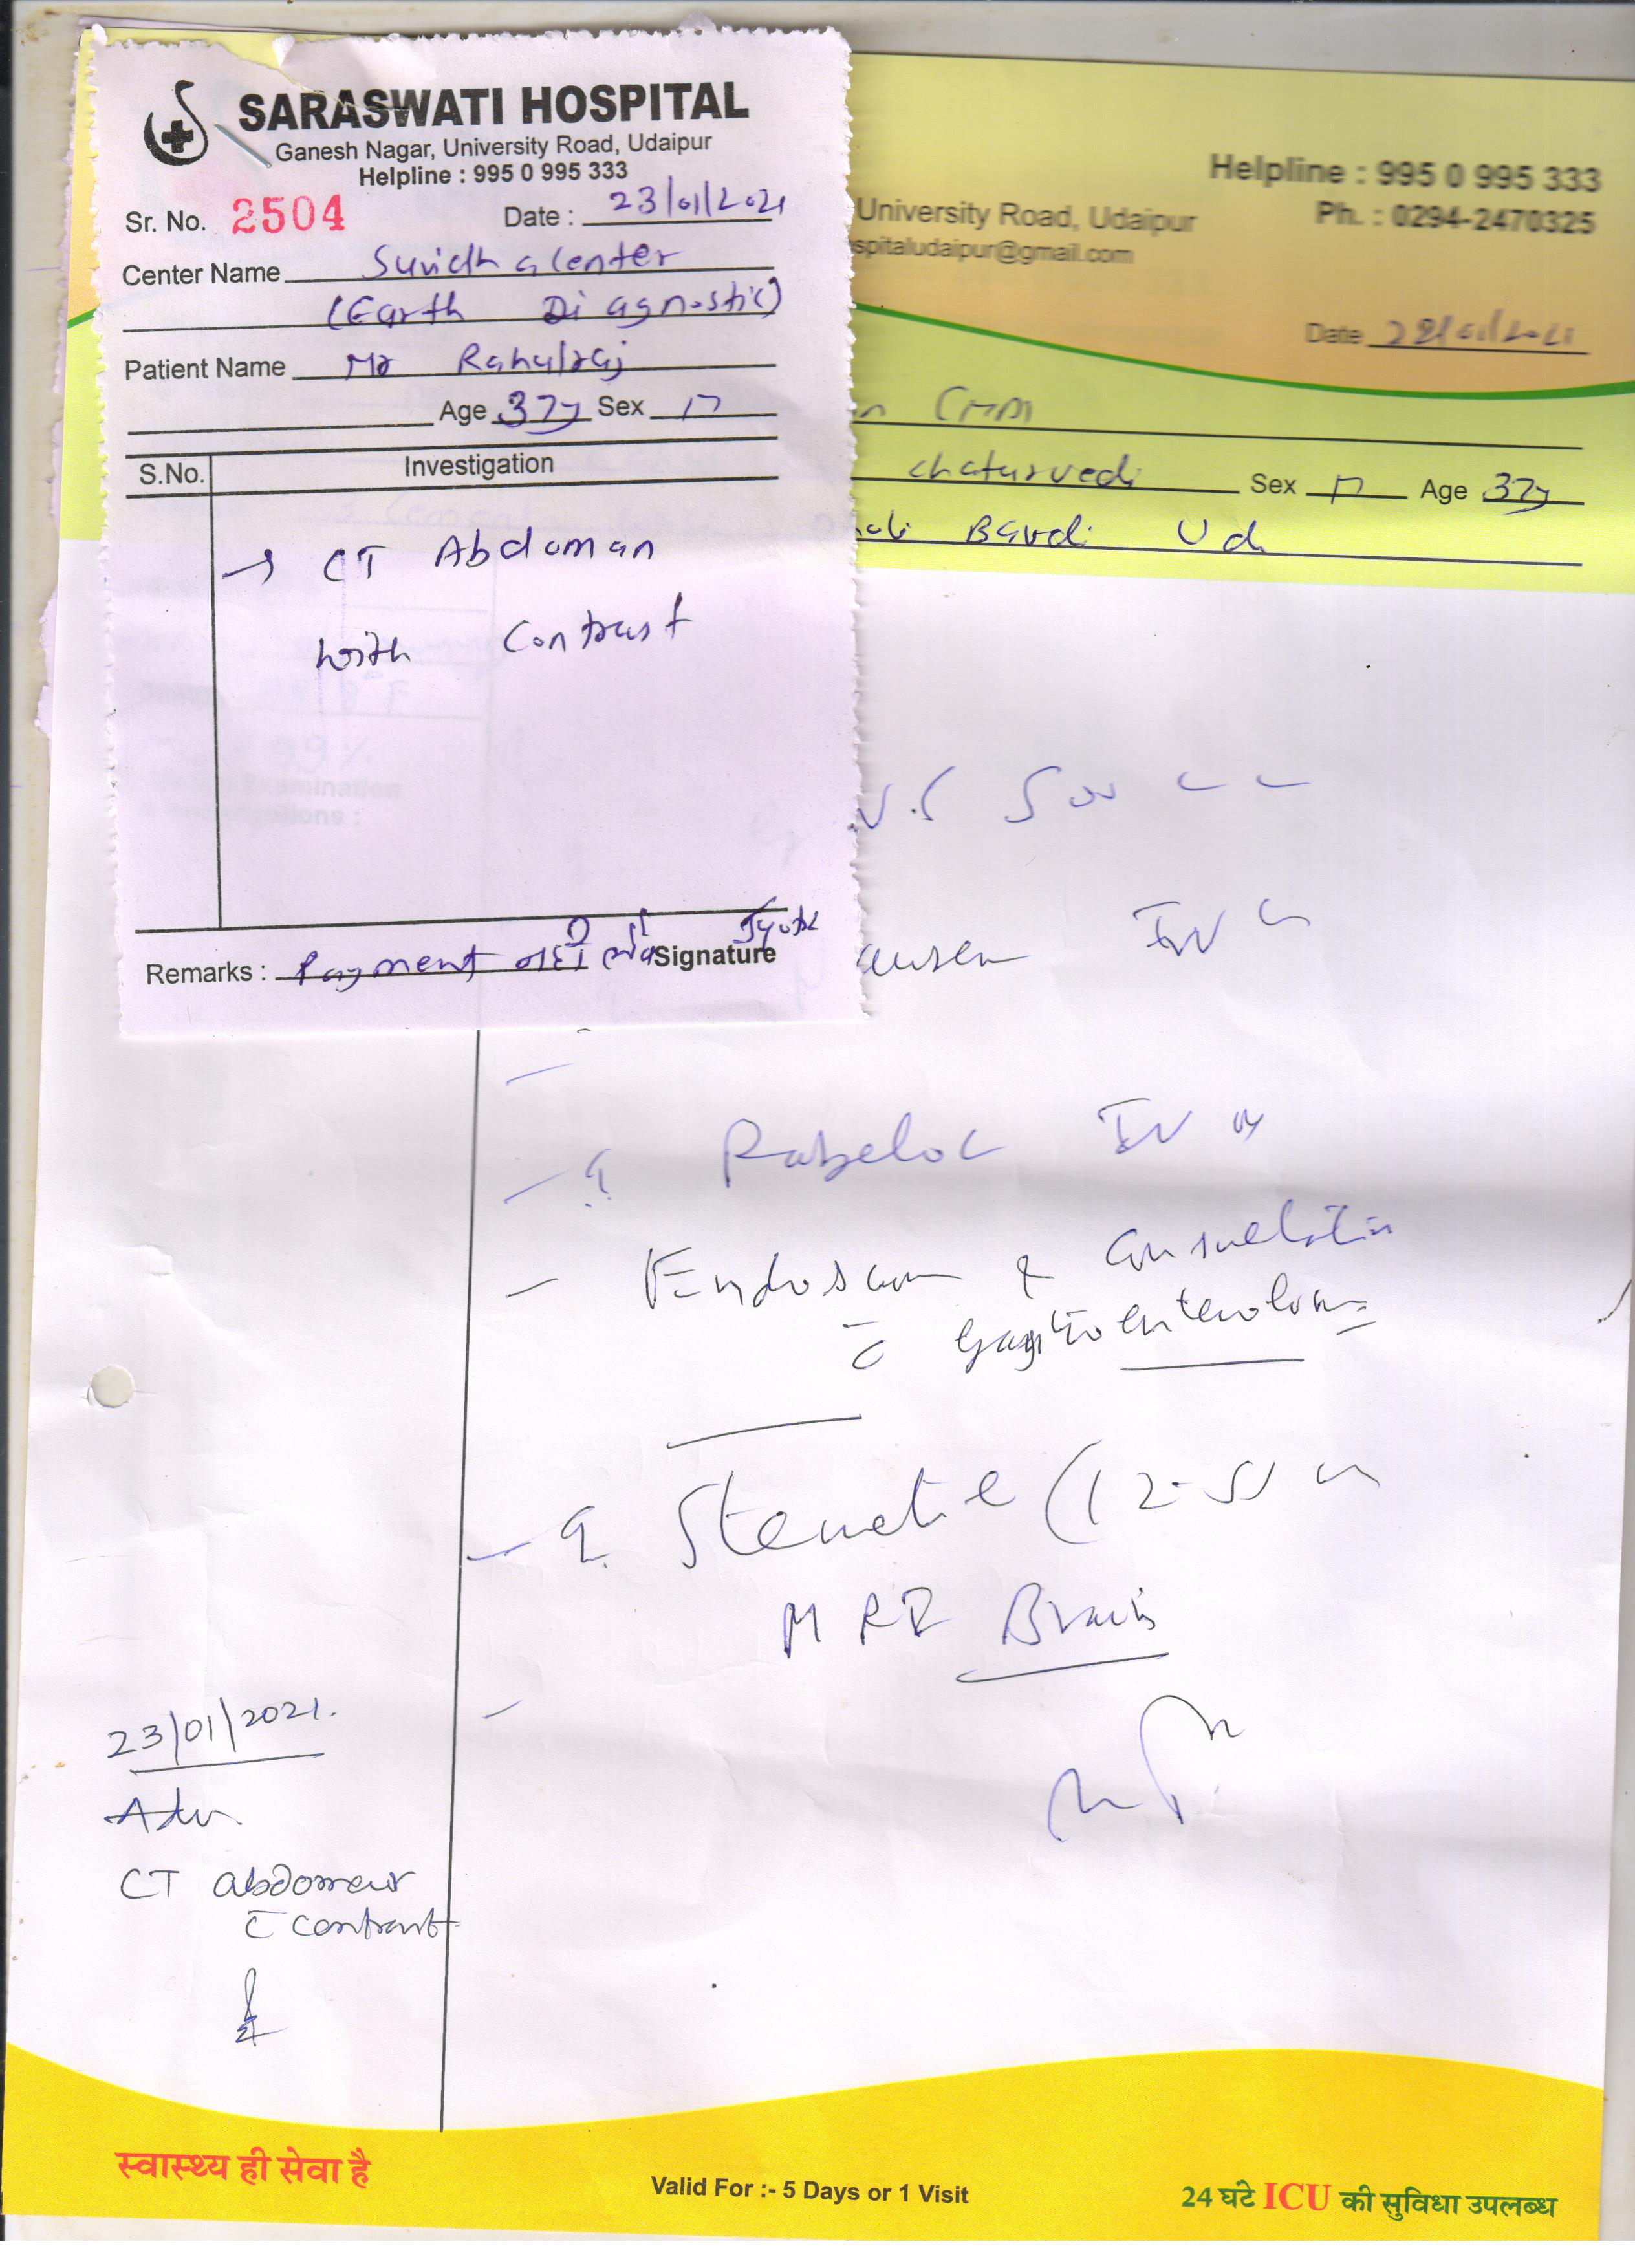 SARASWATI HOSPITAL
Ganesh Nagar, University Road, Udaipur
Helpline : 995 0 995 333
Sr. No. 2504 Date : 23/01/2021
Center Name Suvidha Center
(Earth Diagnostic)
Patient Name Mr Rahulraj
Age 37y Sex M
S.No. Investigation
→ CT Abdoman
with Contrast
Remarks : Payment नही Signature
Helpline : 995 0 995 333
Ph. : 0294-2470325
University Road, Udaipur
spitaludaipur@gmail.com
Date
chaturvedi Sex M Age 37y
Bavdi Ud
500 cc
IV
- Rabeloc IV
- Endoscopy & Consultation
c̄ gastroenterologist
- Stemetil (12.5)
MRI Brain
23/01/2021.
Adv
CT abdomen
c̄ contrast
स्वास्थ्य ही सेवा है
Valid For :- 5 Days or 1 Visit
24 घंटे ICU की सुविधा उपलब्ध